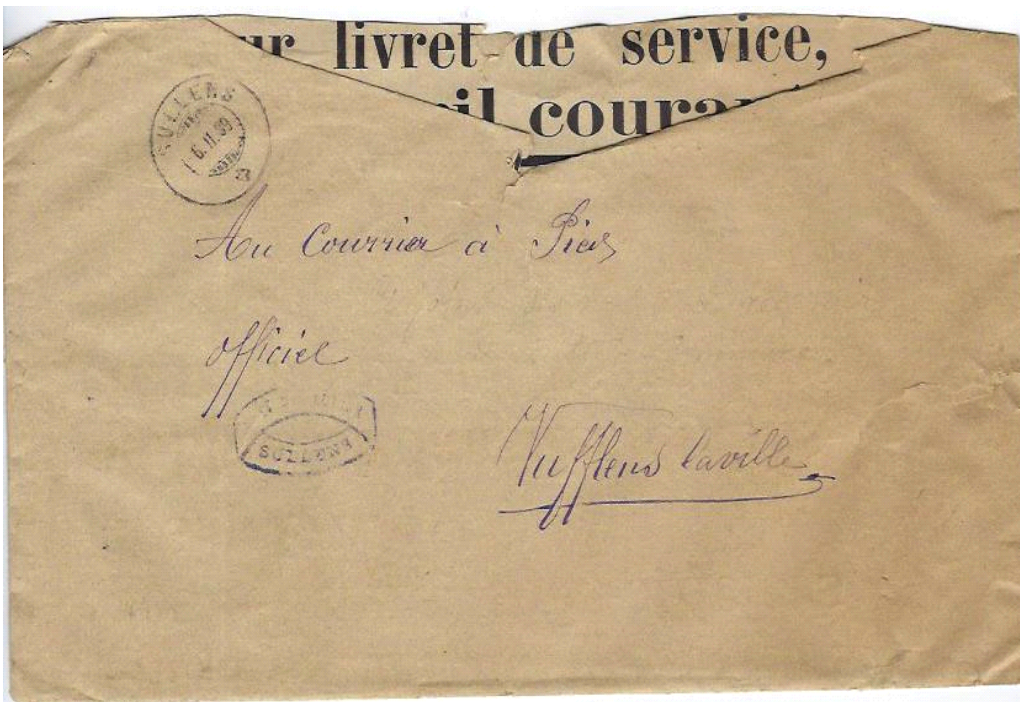 livret de service,
SULLENS
6.II.99
Au Courrier à Pied
Officiel
SULLENS
Vufflens laville